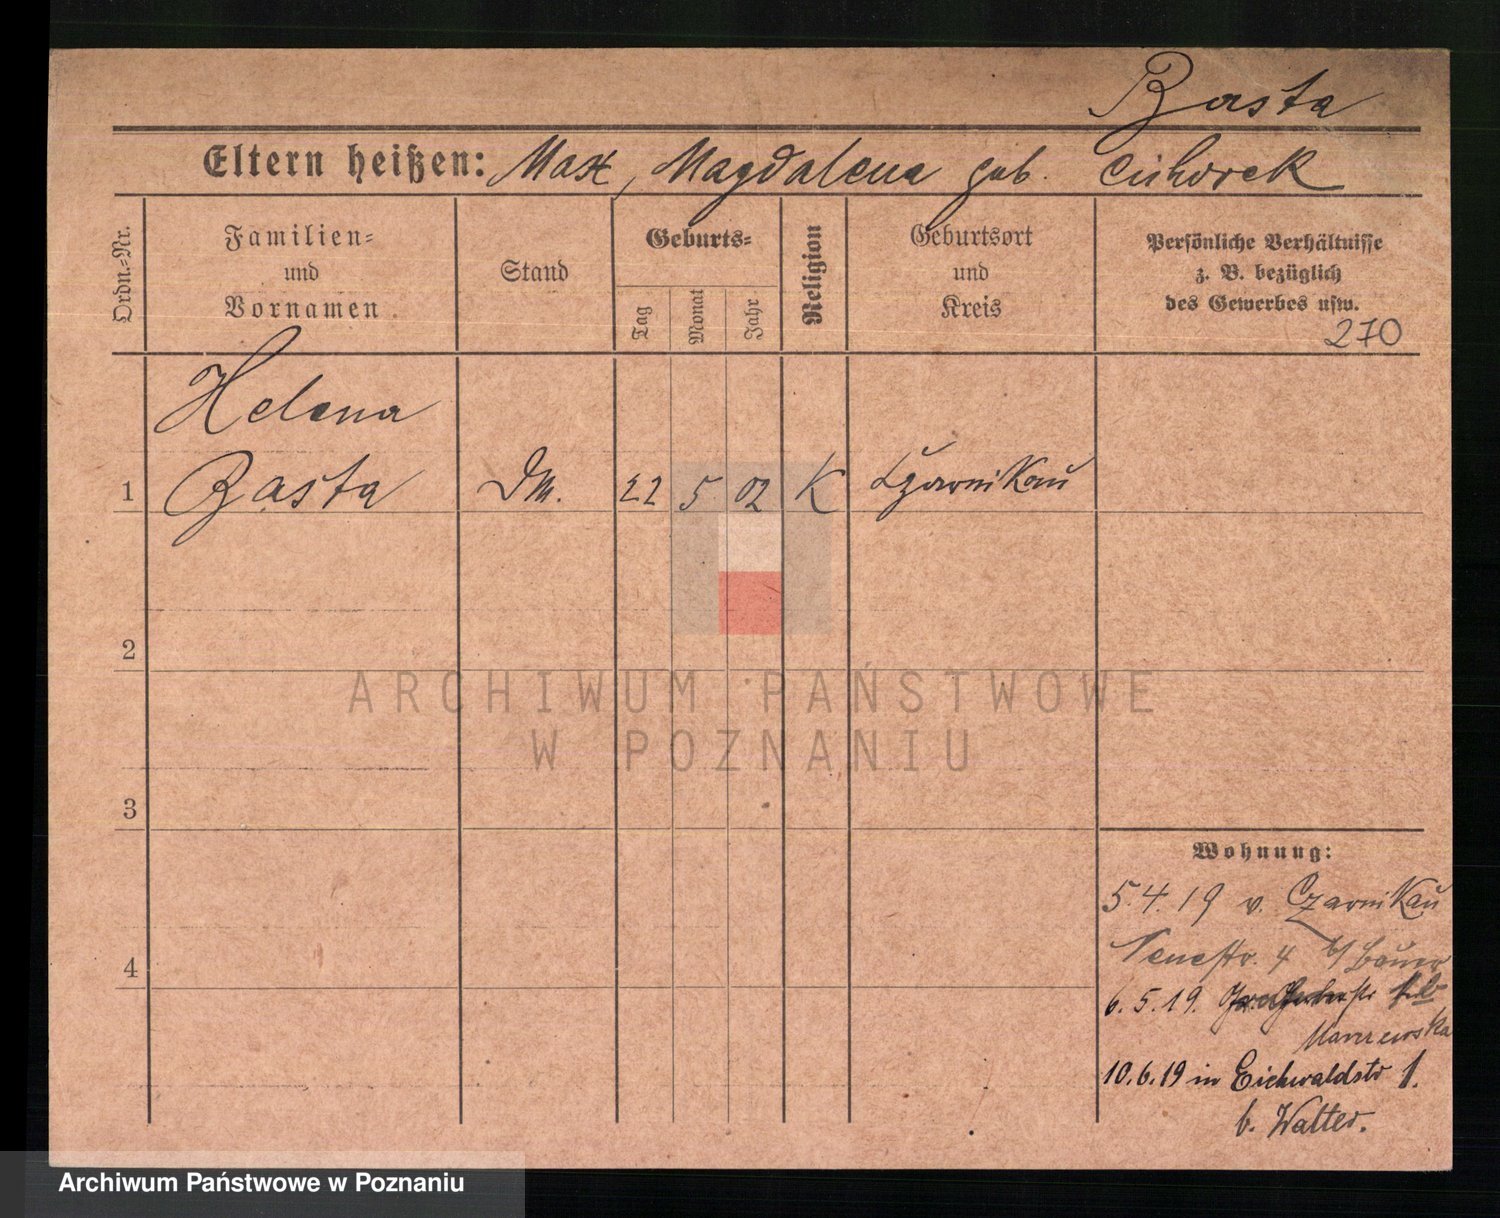 Basta
Eltern heißen: Max, Magdalena geb. Cichorek
Ordn.-Nr.
Familien-
und
Vornamen
Stand
Geburts-
Tag
Monat
Jahr
Religion
Geburtsort
und
Kreis
Persönliche Verhältnisse
z. B. bezüglich
des Gewerbes usw.
270
Helena
1 Basta Dm. 22 5 02 K Czarnikau
2
3
4
ARCHIWUM PAŃSTWOWE
W POZNANIU
Wohnung:
5.4.19 v. Czarnikau
Neuestr. 4 b/ Bauer
6.5.19.
10.6.19 in Eichwaldstr 1.
b. Walter.
Archiwum Państwowe w Poznaniu